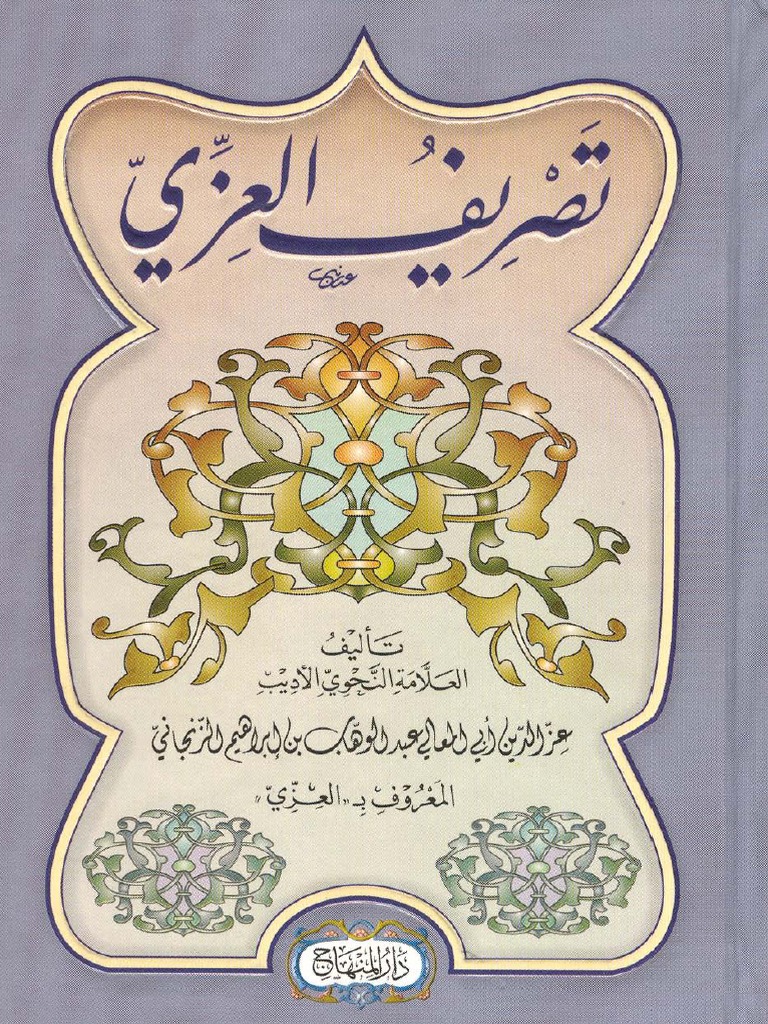 تَصْرِيفُ العِزِّيّ
تَأْلِيْفُ
العَلَّامَةِ النَّحْوِيِّ الأَدِيْبِ
عِزِّ الدِّين أبي المعالي عبد الوهّاب بن إبراهيم الزّنجانيّ
المَعْرُوْفِ بِـ «العِزِّيّ»
دَارُ المِنْهَاج